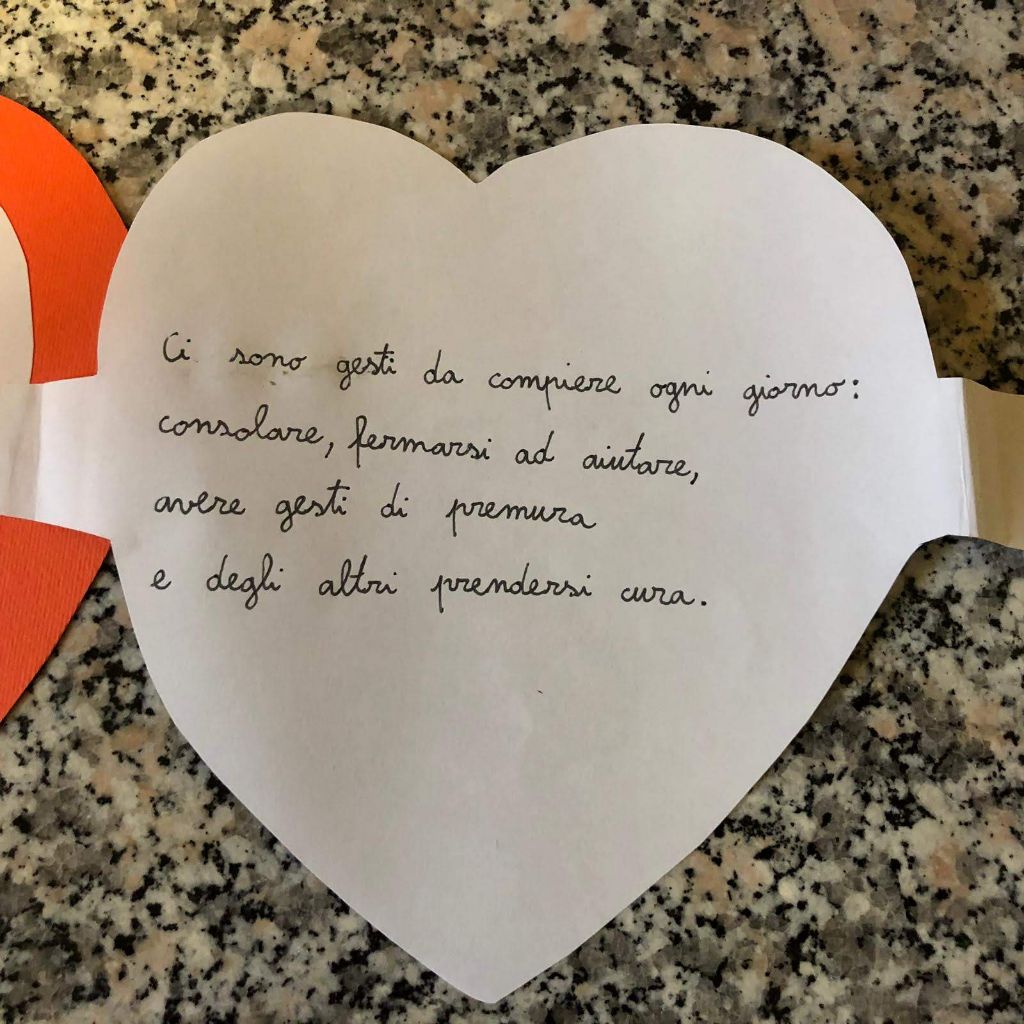 Ci sono gesti da compiere ogni giorno:
consolare, fermarsi ad aiutare,
avere gesti di premura
e degli altri prendersi cura.